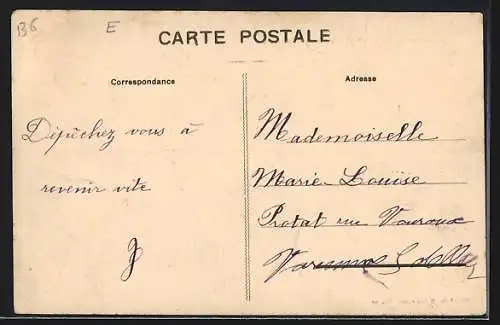 B6 E
CARTE POSTALE
Correspondance
Dépêchez vous à
revenir vite
J
Adresse
Mademoiselle
Marie-Louise
Protat rue Vouroux
Varennes S